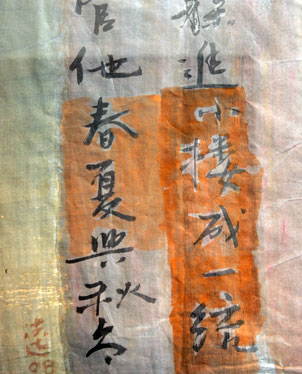 躲進小楼成一統
管他春夏與秋冬
08